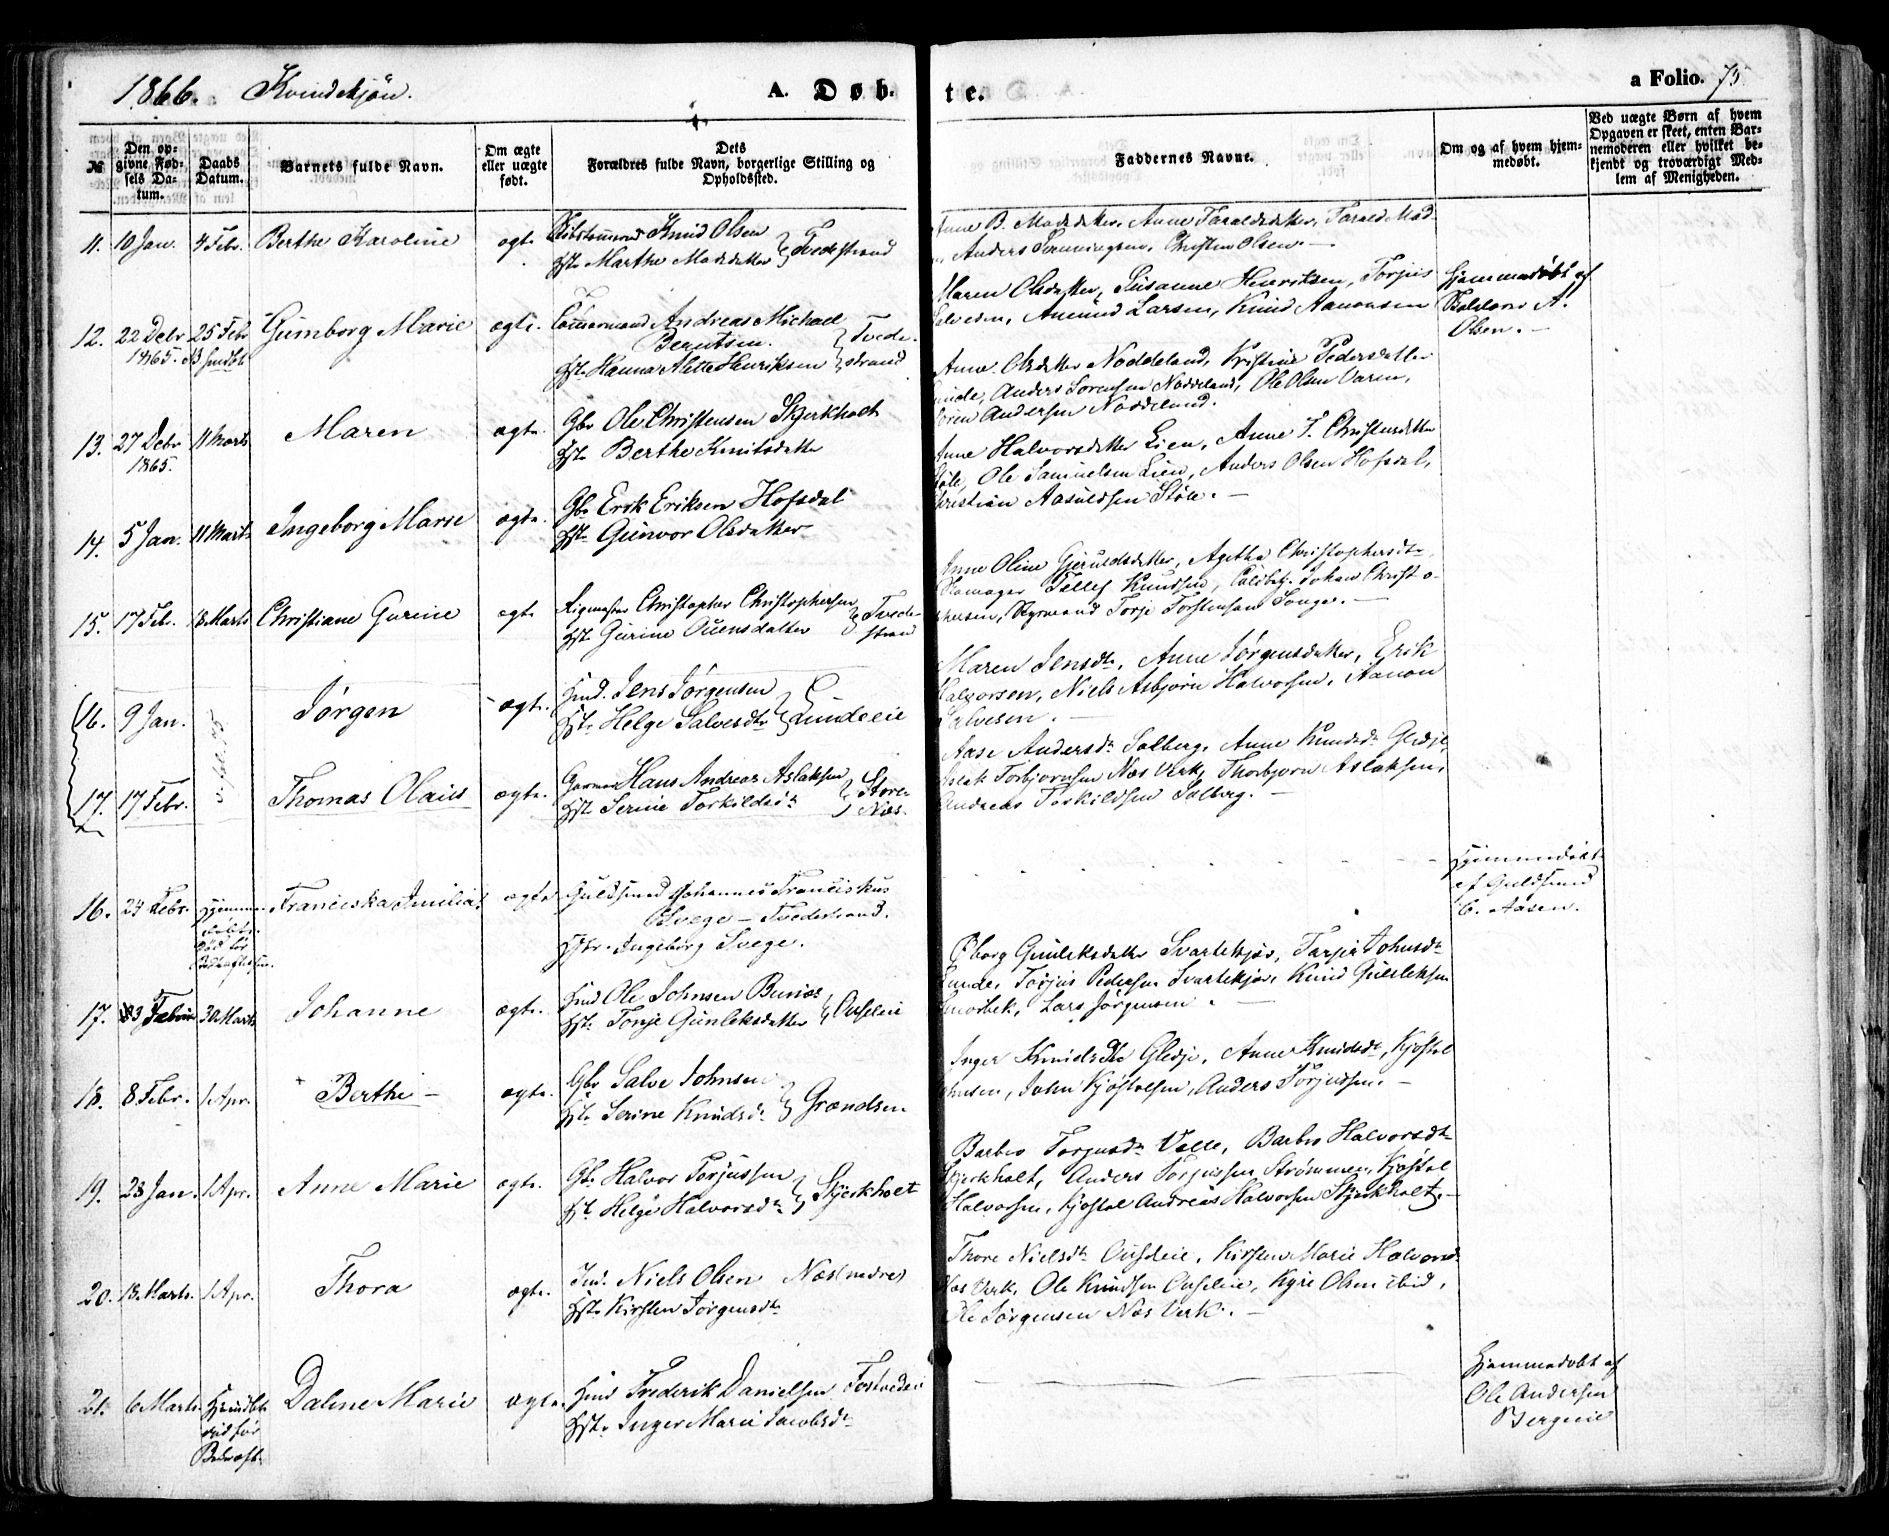 1866. Kvindekjön.
A. Døb-
te.
a Folio. 75
№
Den op-
givne Fød-
sels Da-
tum.
Daabs
Datum.
Barnets fulde Navn.
Om ægte
eller uægte
født.
Dets
Forældres fulde Navn, borgerlige Stilling og
Opholdssted.
Faddernes Navne.
Om og af hvem hjem-
medøbt.
Ved uægte Børn af hvem
Opgaven er skeet, enten Bar-
nemoderen eller hvilket be-
kjendt og troværdigt Med-
lem af Menigheden.
11. 10 Jan. 4 Febr. Berthe Karoline ægte Knud Olsen
Hst. Marthe Madsdatter } Tvedestrand
Anne B. Madsdatter, Anne Taraldsdatter, Tarald Mad-
Anders Henningsen, Christen Olsen. —
12. 22 Debr 1865. 25 Febr Gumborg Marie ægte. Tømmermand Andreas Michael
Berntsen.
Hst. Hanna Mette Henriksen } Tvede-
strand
Maren Olsdatter, Susanne Henriksen, Torjus
Salvesen, Amund Larsen, Knud Aanonsen
Hjemmedøbt af
A.
Olsen. —
13. 27 Debr 1865. 11 Marts Maren ægte. Gbr Ole Christensen Skjerkholt
Hst. Berthe Knutsdatter
Anne Olsdatter Noddeland, Kristine Pedersdatter
Lunde, Anders Sorensen Noddeland, Ole Olsen Varen,
Søren Andersen Noddeland.
14. 5 Jan. 11 Marts Ingeborg Marie ægte. Gbr Erik Eriksen Hofsdal
Hst. Gunvor Olsdatter
Anne Halvorsdatter Lien, Anne T. Christensdatter
Støle, Ole Samuelsen Lien, Anders Olsen Hofsdal,
Christian Aasuldsen Støle. —
15. 17 Febr. 18 Marts Christiane Gurine ægte Rigmester Christopher Christophersen
Hst. Gurine Ouensdatter } Tvede-
strand
Anne Oline Gjeruldsdatter, Agethe Christophersdtr,
Skomager Tellef Knudsen, Johan Christo-
phersen, Styrmand Torje Torstensen Songe. —
16. 9 Jan. Jørgen ægte. Hmd. Jens Jørgensen
Hst. Helge Salvesdtr } Lundeeie
Maren Jensdtr, Anne Jørgensdatter, Erik
Halvorsen, Niels Asbjørn Halvorsen, Aanon
Salvesen. —
17. 17 Febr. Thomas Olaus ægte. Hans Andreas Aslaksen
Hst. Serine Torkildsdtr } Store
Næs.
Aase Andersdtr Solberg, Anne Knudsdtr Gledje,
Aslak Torbjørnsen Næs Verk, Thorbjørn Aslaksen,
Andreas Torkildsen Solberg. —
16. 24 Febr. Hjemme-
døbt.
Død før
Franciska Emilia ægte Guldsmed Johannes Franciskus
Svege — Tvedestrand.
Hstr. Ingeborg Svege.
Hjemmedøbt
af Guldsmed
C. Aasen.
17. 3 Febr 30 Marts Johanne ægte. Hmd Ole Johnsen Bunæs
Hst. Tonje Gunleksdatter } Ouseleie
Gunleksdatter Svartekjær, Tarjer Johnsdtr
Lunde, Torjus Pedersen Svartekjær, Knud Gunleksen
Smørbek, Lars Jørgensen. —
18. 8 Febr. 1 Apr. Berthe — ægte. Gbr Salve Johnsen
Hst. Serine Knudsdtr } Grændsen
Inger Knudsdtr Gledje, Anne Knudsdtr, Kjøstol
Johnsen, John Kjøstolsen, Anders Torjussen. —
19. 23 Jan. 1 Apr. Anne Marie ægte. Gbr Halvor Torjussen
Hst. Helge Halvorsdtr } Skjerkholt
Barbro Torjusdtr Valle, Barbro Halvorsdtr
Skjerkholt, Anders Torjussen Strømmen, Kjøstol
Halvorsen, Kjøstol Andreas Halvorsen Skjerkholt. —
20. 13 Marts. 1 Apr. Thora ægte. Ind. Niels Olsen Næs (nedre)
Hst. Kirsten Jørgensdtr
Thore Nielsdtr Ouseleie, Kirsten Marie Halvorsd
Næs Verk, Ole Knudsen Ouseleie, Kyre Olsen ibid,
Ole Jørgensen Næs Verk. —
21. 6 Marts. Hjmdøbt
død før
Daline Marie ægte. Hmd Frederik Danielsen Fostvedeie
Hst. Inger Marie Jacobsdtr
Hjemmedøbt af
Ole Andersen
Bergeie